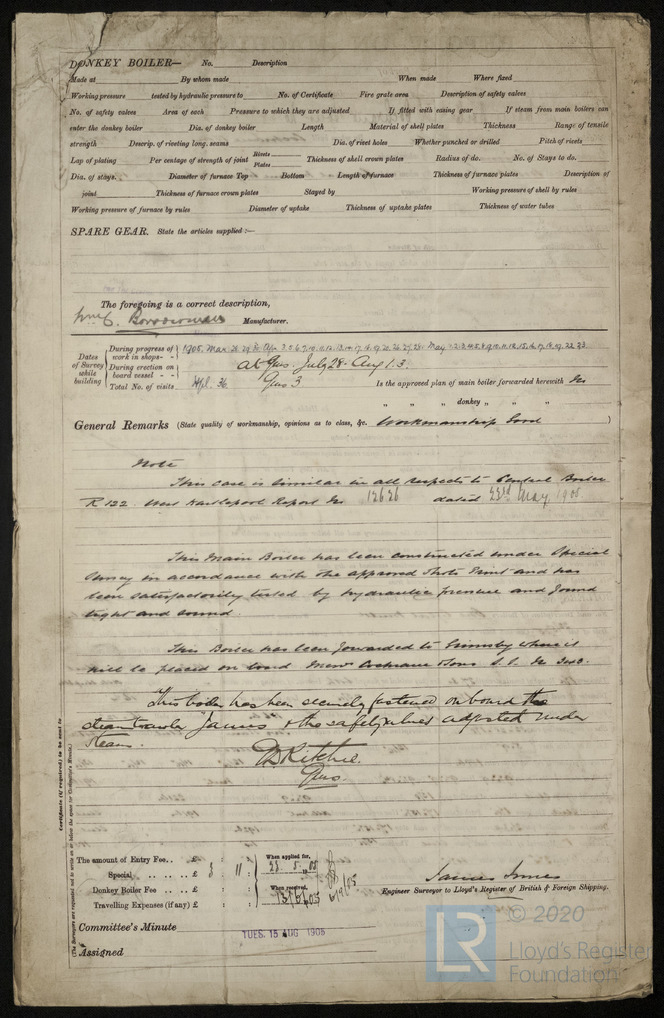 DONKEY BOILER— No. Description
Made at By whom made When made Where fixed
Working pressure tested by hydraulic pressure to No. of Certificate Fire grate area Description of safety valves
No. of safety valves Area of each Pressure to which they are adjusted If fitted with easing gear If steam from main boilers can
enter the donkey boiler Dia. of donkey boiler Length Material of shell plates Thickness Range of tensile
strength Descrip. of riveting long. seams Dia. of rivet holes Whether punched or drilled Pitch of rivets
Lap of plating Per centage of strength of joint Rivets Plates Thickness of shell crown plates Radius of do. No. of Stays to do.
Dia. of stays. Diameter of furnace Top Bottom Length of furnace Thickness of furnace plates Description of
joint Thickness of furnace crown plates Stayed by Working pressure of shell by rules
Working pressure of furnace by rules Diameter of uptake Thickness of uptake plates Thickness of water tubes
SPARE GEAR. State the articles supplied :—
The foregoing is a correct description,
Borrowman Manufacturer.
Dates of Survey while building
During progress of work in shops - - 1905. Mar. May
During erection on board vessel - - at Gms. July 28. Aug 1. 3.
Total No. of visits Hpl. 36 Gms 3 Is the approved plan of main boiler forwarded herewith No
" " " donkey " " "
General Remarks (State quality of workmanship, opinions as to class, &c. Workmanship Good )
Note
This case is similar in all respects to Central Boiler
R 122 West Hartlepool Report No 12626 dated 23rd May 1905.
This Main Boiler has been constructed under Special
Survey in accordance with the approved Print and has
been satisfactorily tested by hydraulic pressure and found
tight and sound.
This Boiler has been forwarded to Grimsby where it
will be placed on board Messrs Cochrane & Sons S.S. No
This boiler has been securely fastened on board the
steam trawler "Janus" & the safety valves adjusted under
steam.
Ritchie.
Gms.
Certificate (if required) to be sent to
(The Surveyors are requested not to write on or below the space for Committee's Minute.)
The amount of Entry Fee . . £ : : When applied for,
Special . . . . . . £ 3 : 11 : 23. 5. 05
Donkey Boiler Fee . . £ : : When received,
Travelling Expenses (if any) £ : : 13/6/05
James Innes
Engineer Surveyor to Lloyd's Register of British & Foreign Shipping.
Committee's Minute TUES. 15 AUG 1905
Assigned
LR © 2020
Lloyd's Register
Foundation